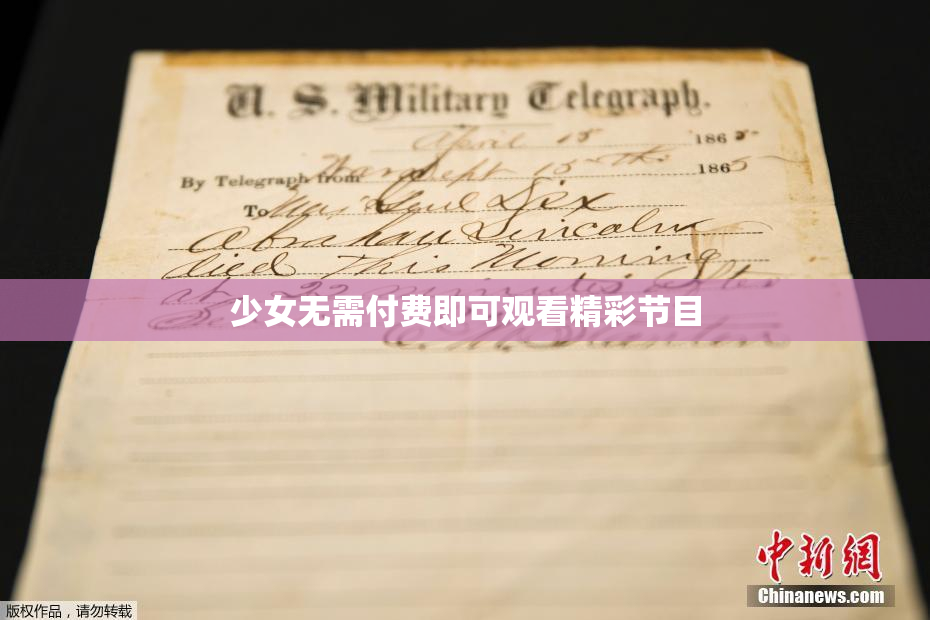 U. S. Military Telegraph.
April 15 1865
By Telegraph from War Dept 15th 1865
To Maj Genl Dix
Abraham Lincoln
died This Morning
at 22 minutes after
少女无需付费即可观看精彩节目
Se
E. M. Stanton
中新网
Chinanews.com
版权作品，请勿转载